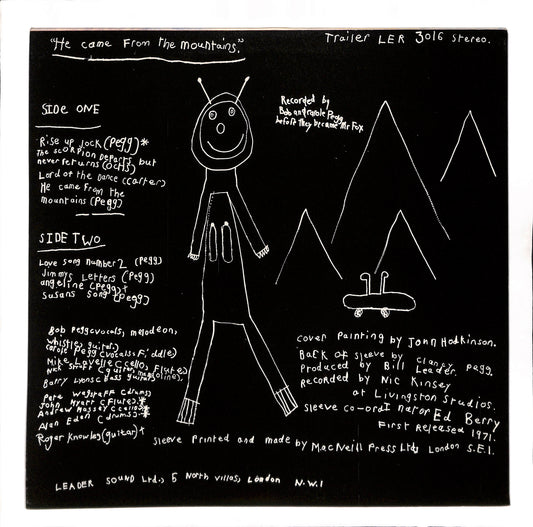 "He came From the mountains."
Trailer LER 3016 Stereo.
Recorded by
Bob and Carole Pegg
before they became Mr Fox
SIDE ONE
Rise up Jock (Pegg)*
The scorpion Departs but
never returns (Ochs)
Lord of the Dance (Carter)
He came From the
mountains (Pegg)
SIDE TWO
Love song number 2 (Pegg)
Jimmys Letters (Pegg)
angeline (Pegg)+
Susans song (Pegg)
Bob Pegg (vocals, melodeon,
whistle, guitar,)
Carole Pegg (vocals, Fiddle)
Mike Lavelle (cello, Flute)
Nick Strutt (guitar, mandoline)
Barry Lyons (bass guitar)
Pete Wagstaff (drums)
John Myatt (Flute).*
Andrew Massey (cello).*
Alan Eden (drums)–*
Roger Knowles (guitar)+
cover Painting by John Hodkinson.
Back of sleeve by Clancy Pegg.
Produced by Bill Leader.
Recorded by Nic Kinsey
at Livingston Studios.
sleeve co-ordinator Ed Berry
First Released 1971.
sleeve Printed and made by MacNeill Press Ltd, London S.E.1.
LEADER SOUND Ltd., 5 North Villas, London N.W.1